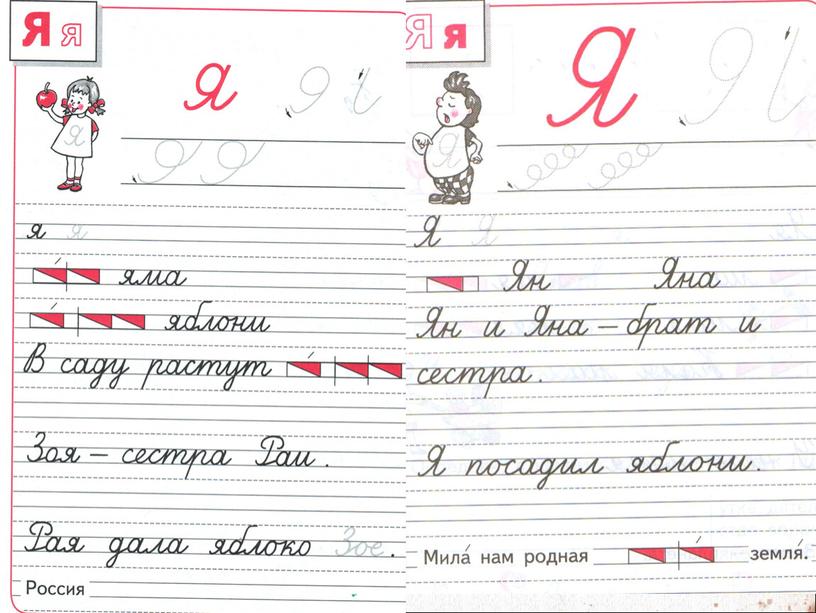 Я я
Я
Я
я я
яма
яблони
В саду растут
Зоя – сестра Раи.
Рая дала яблоко Зое.
Россия
Я я
Я
Я
Я Я
Ян Яна
Ян и Яна – брат и
сестра.
Я посадил яблони.
Мила́ нам родная земля́.